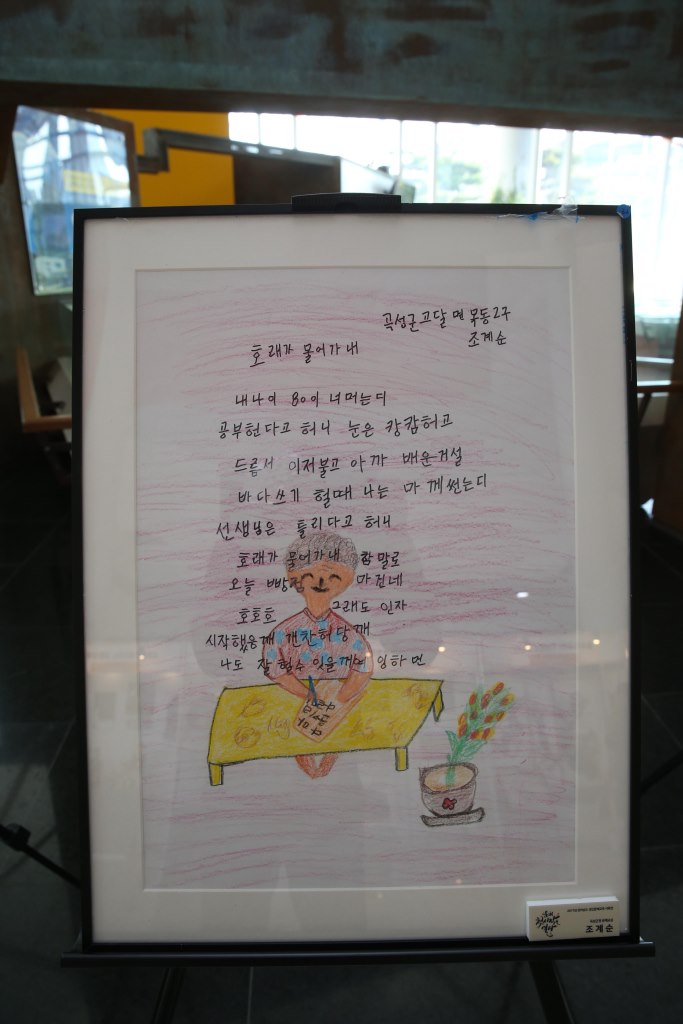 곡성군 고달 면 목동2구
조계순
호래가 물어가 내
내 나 이 80이 너머는디
공부헌다고 허니 눈은 캉캄허고
드름서 이저불고 아까 배운거설
바다쓰기 헐때 나는 마 께썬는디
선생님은 틀리다고 허니
호래가 물어가내 참말로
오늘 빵점 마건네
호호호 그래도 인자
시작했응께 갠찬허당께
나도 잘 헐수 잇을께여 잉하면
조계순